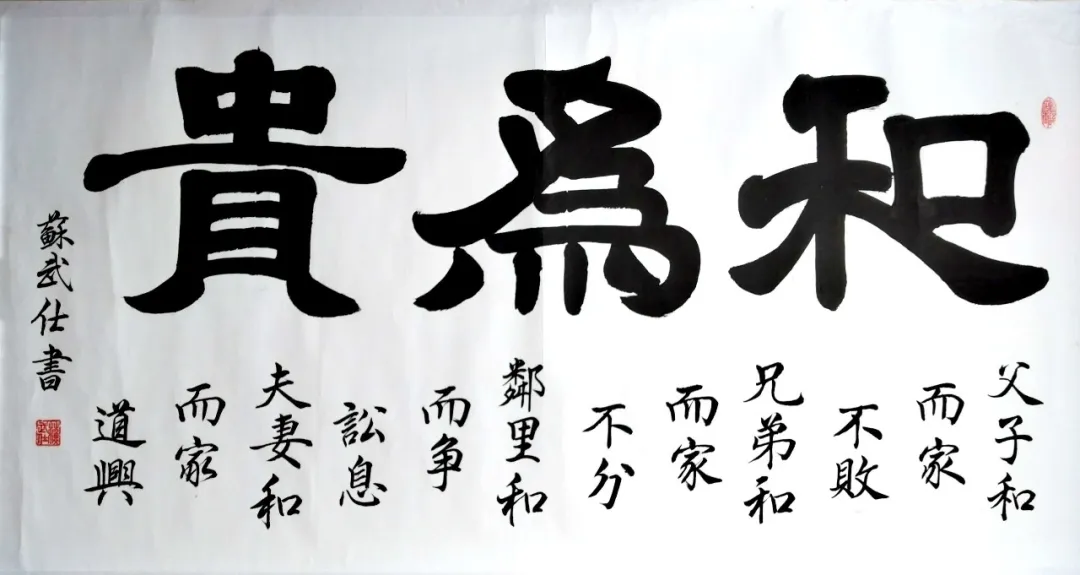 和為貴
父子和
而家
不敗
兄弟和
而家
不分
鄰里和
而争
訟息
夫妻和
而家
道興
蘇武仕書